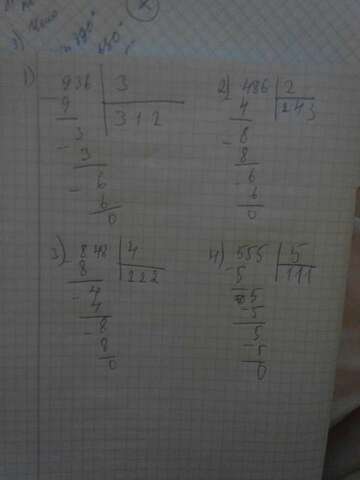 1) 936 | 3
9 | 312
- 3
3
- 6
6
0
2) 486 | 2
4 | 243
- 8
8
- 6
6
0
3) - 848 | 4
8 | 222
- 4
4
- 8
8
0
4) - 555 | 5
5 | 111
5
- 5
5
- 5
0